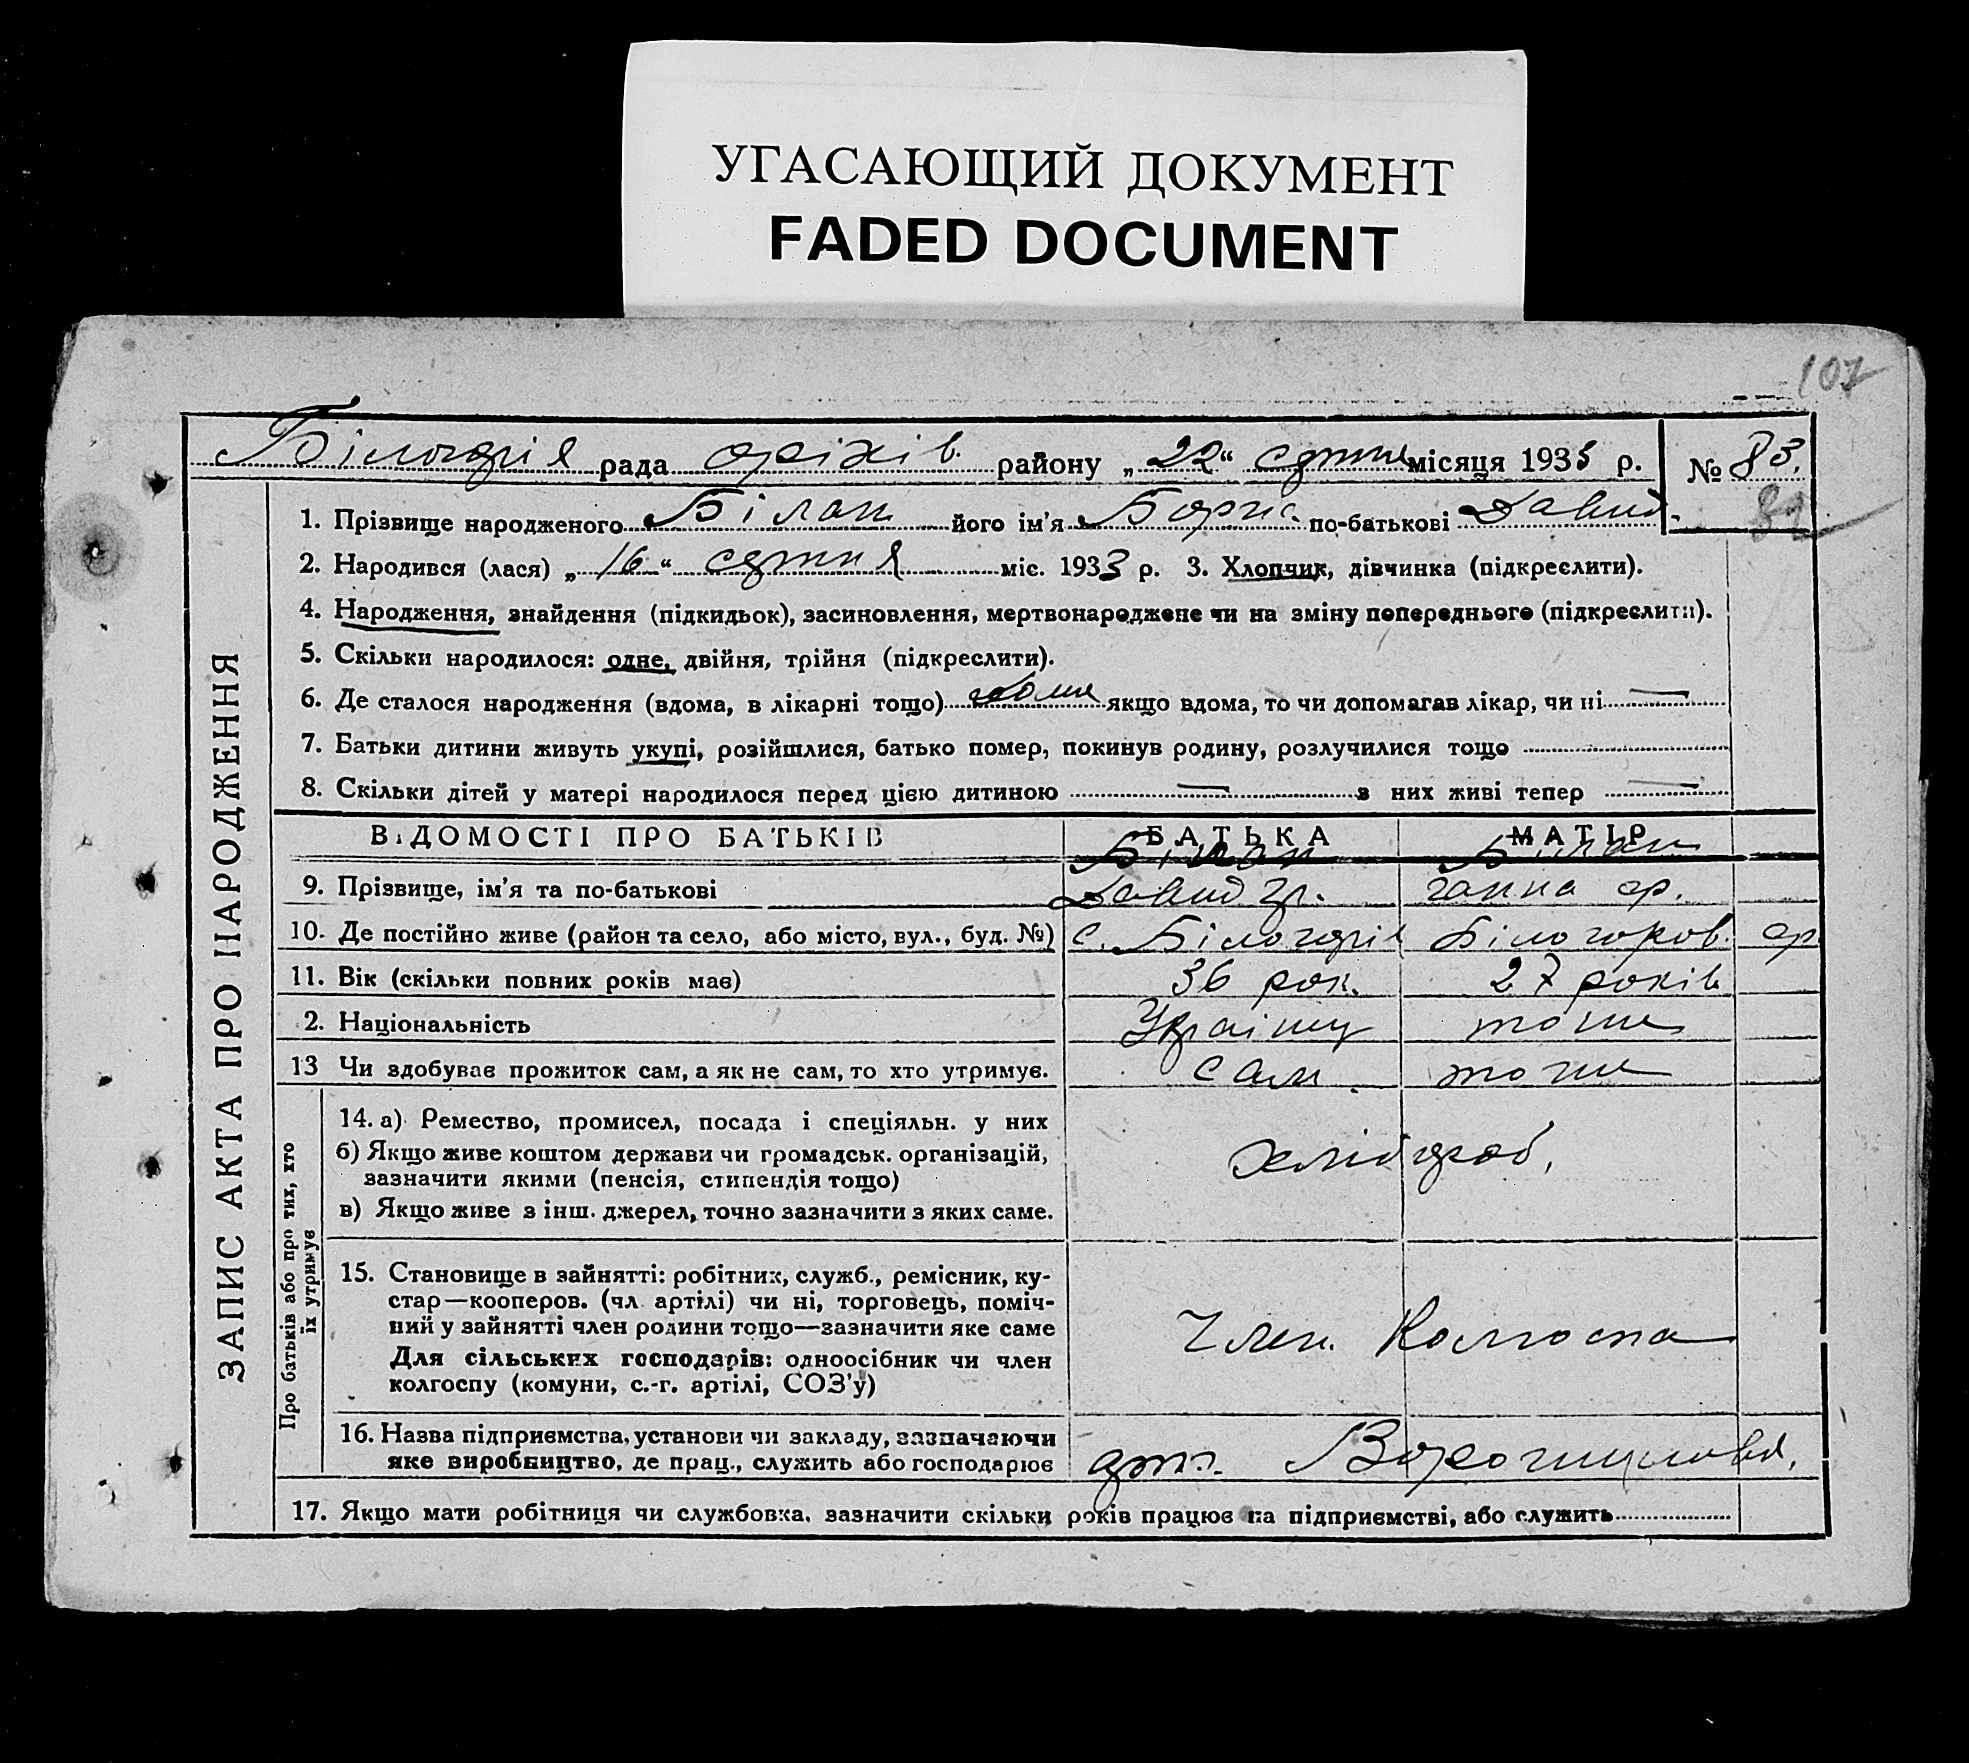 УГАСАЮЩИЙ ДОКУМЕНТ
FADED DOCUMENT
107
Білогірія рада оріхів. району „22“ серпня місяця 1933 р. № 83.
1. Прізвище народженого Білан його ім'я Борис. по-батькові Давид.
2. Народився (лася) „16“ серпня міс. 1933 р. 3. Хлопчик, дівчинка (підкреслити).
4. Народження, знайдення (підкидьок), засиновлення, мертвонароджене чи на зміну попереднього (підкреслити).
5. Скільки народилося: одне, двійня, трійня (підкреслити).
6. Де сталося народження (вдома, в лікарні тощо) дома якщо вдома, то чи допомагав лікар, чи ні —
7. Батьки дитини живуть укупі, розійшлися, батько помер, покинув родину, розлучилися тощо
8. Скільки дітей у матері народилося перед цією дитиною — з них живі тепер —
ЗАПИС АКТА ПРО НАРОДЖЕННЯ
ВІДОМОСТІ ПРО БАТЬКІВ БАТЬКА МАТІР
Білан Білан
9. Прізвище, ім'я та по-батькові Давид Гр. Ганна ар.
10. Де постійно живе (район та село, або місто, вул., буд. №) с. Білогірія Білогоров. ор
11. Вік (скільки повних років має) 36 рок. 27 років
2. Національність Україну тоже
13 Чи здобував прожиток сам, а як не сам, то хто утримує. сам. тоже
Про батьків або про тих, хто їх утримує
14. а) Ремество, промисел, посада і спеціяльн. у них
б) Якщо живе коштом держави чи громадськ. організацій,
зазначити якими (пенсія, стипендія тощо)
в) Якщо живе з інш. джерел, точно зазначити з яких саме.
хлібороб.
15. Становище в зайнятті: робітник, служб., ремісник, ку-
стар—кооперов. (чл. артілі) чи ні, торговець, поміч-
ний у зайнятті член родини тощо—зазначити яке саме
Для сільських господарів: одноосібник чи член
колгоспу (комуни, с.-г. артілі, СОЗ'у)
Член. Колгоспа
16. Назва підприємства, установи чи закладу, зазначаючи
яке виробництво, де прац., служить або господарює
арт. Ворошилова.
17. Якщо мати робітниця чи службовка, зазначити скільки років працює на підприємстві, або служить